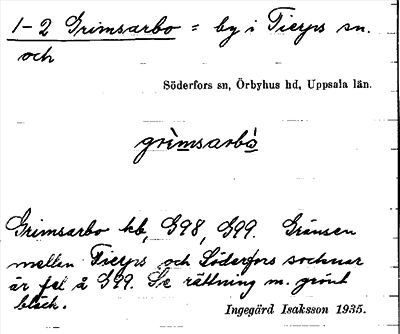 1-2 Grimsarbo = by i Tierps sn.
och
Söderfors sn, Örbyhus hd, Uppsala län.
grìmsarbò
Grimsarbo kb, G98, G99. Gränsen
mellan Tierps och Söderfors socknar
är fel å G99. Se rättning m. grönt
bläck.
Ingegärd Isaksson 1935.